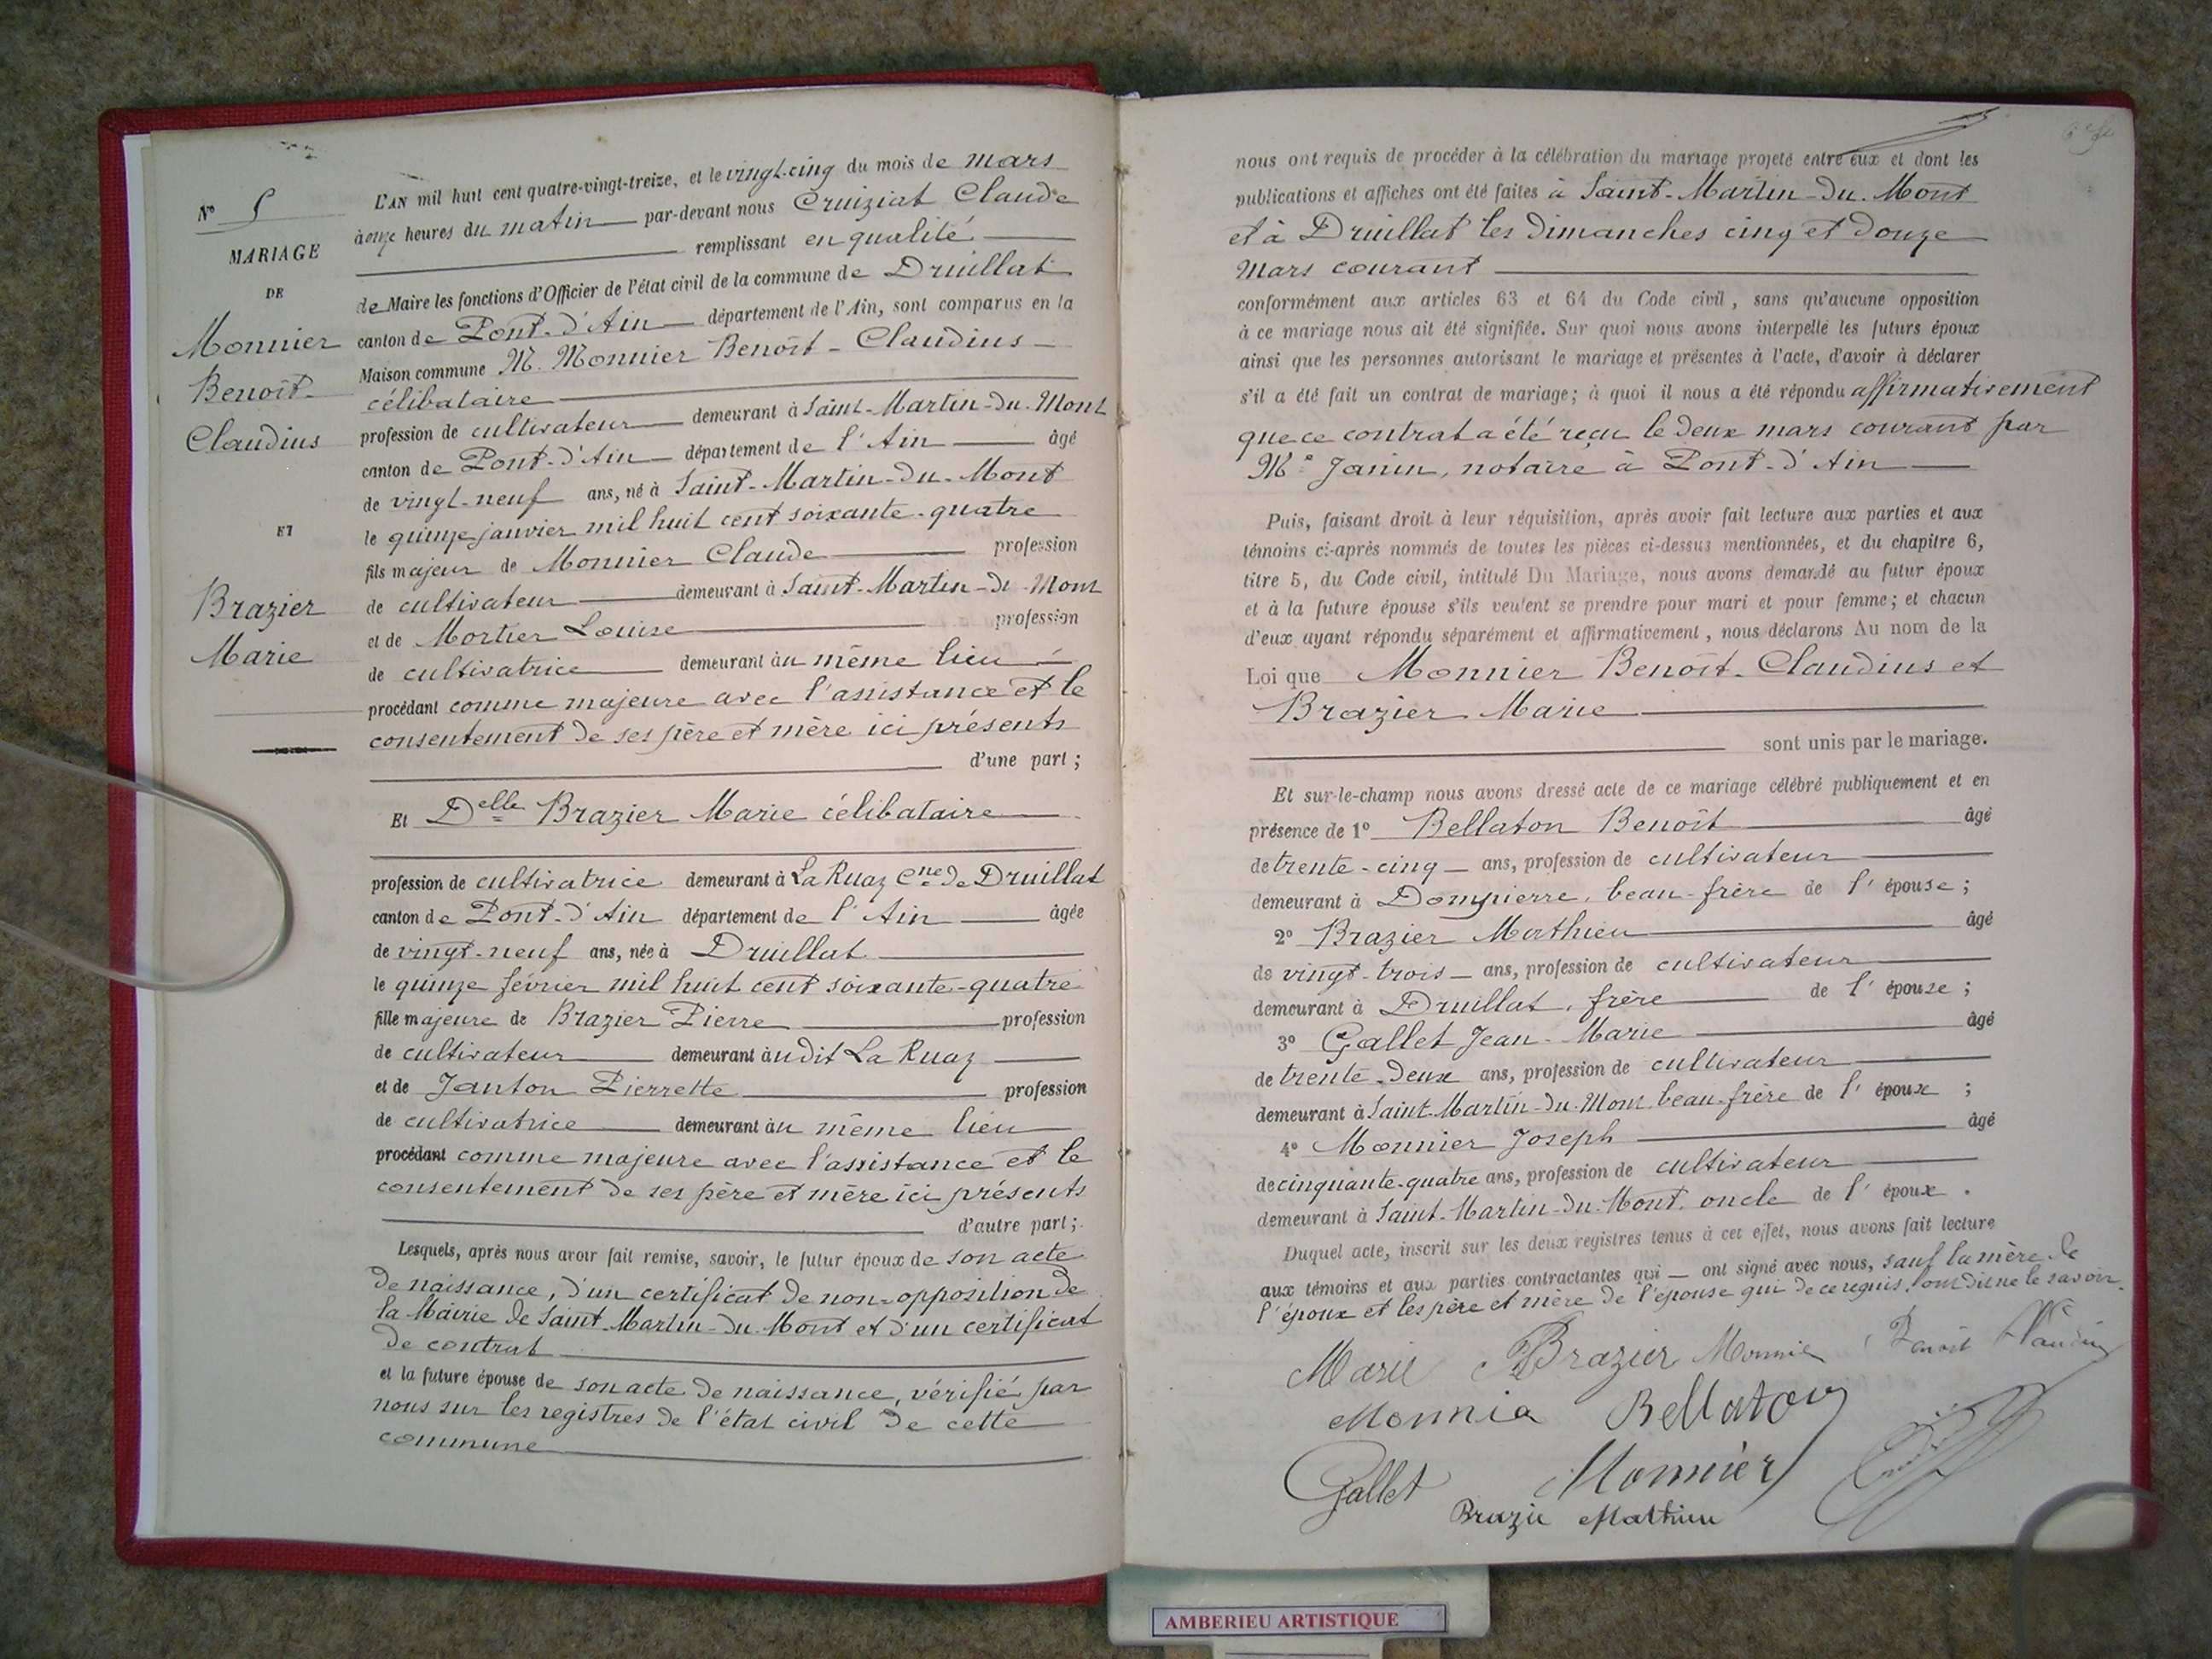 N° 5
MARIAGE
DE
Monnier
Benoît-
Claudius
ET
Brazier
Marie
L'AN mil huit cent quatre-vingt-treize, et le vingt-cinq du mois de mars
à onze heures du matin par-devant nous Cruiziat Claude
remplissant en qualité
de Maire les fonctions d'Officier de l'état civil de la commune de Druillat
canton de Pont-d'Ain département de l'Ain, sont comparus en la
Maison commune M. Monnier Benoît-Claudius
célibataire
profession de cultivateur demeurant à Saint-Martin-du-Mont
canton de Pont-d'Ain département de l'Ain âgé
de vingt-neuf ans, né à Saint-Martin-du-Mont
le quinze janvier mil huit cent soixante-quatre
fils majeur de Monnier Claude profession
de cultivateur demeurant à Saint-Martin-du-Mont
et de Mortier Louise profession
de cultivatrice demeurant au même lieu
procédant comme majeure avec l'assistance et le
consentement de ses père et mère ici présents
d'une part ;
Et Delle Brazier Marie célibataire
profession de cultivatrice demeurant à La Ruaz Cne de Druillat
canton de Pont-d'Ain département de l'Ain âgée
de vingt-neuf ans, née à Druillat
le quinze février mil huit cent soixante-quatre
fille majeure de Brazier Pierre profession
de cultivateur demeurant audit La Ruaz
et de Janton Pierrette profession
de cultivatrice demeurant au même lieu
procédant comme majeure avec l'assistance et le
consentement de ses père et mère ici présents
d'autre part ;
Lesquels, après nous avoir fait remise, savoir, le futur époux de son acte
de naissance, d'un certificat de non-opposition de
la Mairie de Saint-Martin-du-Mont et d'un certificat
de contrat
et la future épouse de son acte de naissance, vérifié par
nous sur les registres de l'état civil de cette
commune
nous ont requis de procéder à la célébration du mariage projeté entre eux et dont les
publications et affiches ont été faites à Saint-Martin-du-Mont
et à Druillat les dimanches cinq et douze
mars courant
conformément aux articles 63 et 64 du Code civil, sans qu'aucune opposition
à ce mariage nous ait été signifiée. Sur quoi nous avons interpellé les futurs époux
ainsi que les personnes autorisant le mariage et présentes à l'acte, d'avoir à déclarer
s'il a été fait un contrat de mariage ; à quoi il nous a été répondu affirmativement
que ce contrat a été reçu le deux mars courant par
Me Janin, notaire à Pont-d'Ain
Puis, faisant droit à leur réquisition, après avoir fait lecture aux parties et aux
témoins ci-après nommés de toutes les pièces ci-dessus mentionnées, et du chapitre 6,
titre 5, du Code civil, intitulé Du Mariage, nous avons demandé au futur époux
et à la future épouse s'ils veulent se prendre pour mari et pour femme ; et chacun
d'eux ayant répondu séparément et affirmativement, nous déclarons Au nom de la
Loi que Monnier Benoît-Claudius et
Brazier Marie
sont unis par le mariage.
Et sur-le-champ nous avons dressé acte de ce mariage célébré publiquement et en
présence de 1° Bellaton Benoît âgé
de trente-cinq ans, profession de cultivateur
demeurant à Dompierre, beau-frère de l'épouse ;
2° Brazier Mathieu âgé
de vingt-trois ans, profession de cultivateur
demeurant à Druillat, frère de l'épouse ;
3° Gallet Jean-Marie âgé
de trente-deux ans, profession de cultivateur
demeurant à Saint-Martin-du-Mont beau-frère de l'époux ;
4° Monnier Joseph âgé
de cinquante-quatre ans, profession de cultivateur
demeurant à Saint-Martin-du-Mont, oncle de l'époux.
Duquel acte, inscrit sur les deux registres tenus à cet effet, nous avons fait lecture
aux témoins et aux parties contractantes qui ont signé avec nous, sauf la mère de
l'époux et les père et mère de l'épouse qui de ce requis, ont dit ne le savoir.
Marie Brazier Monnier Benoît Claudius
Monnier Bellaton
Gallet Monnier
Brazie Mathieu
AMBERIEU ARTISTIQUE